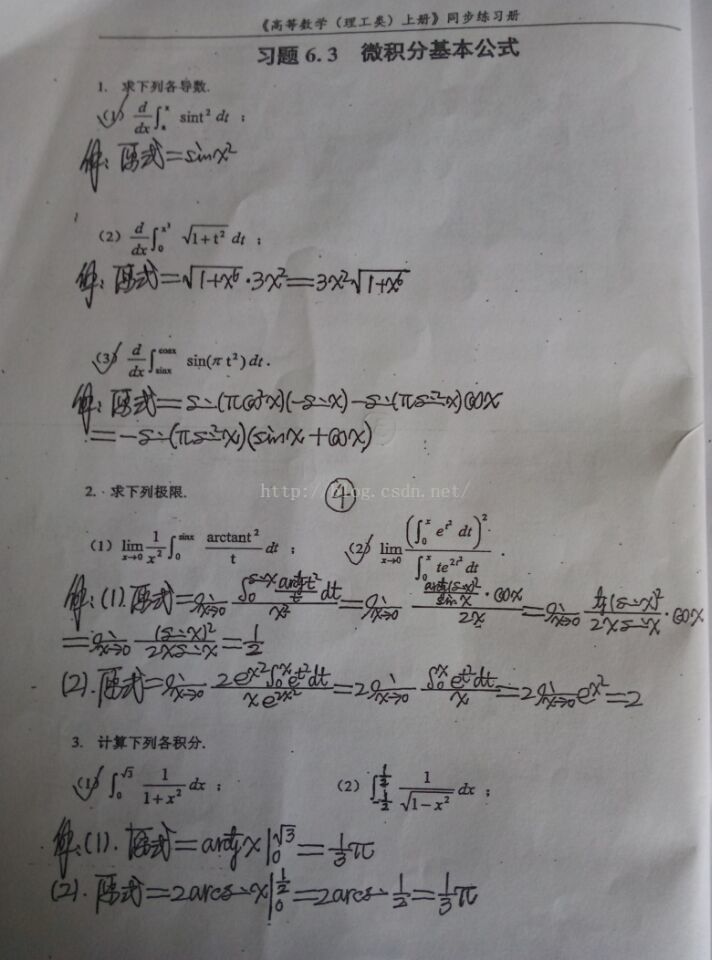 《高等数学(理工类)上册》同步练习册
习题 6.3 微积分基本公式
1. 求下列各导数.
(1) d/dx ∫_a^x sint² dt ;
解: 原式=sinx²
(2) d/dx ∫_0^{x³} √(1+t²) dt ;
解: 原式=√(1+x⁶)·3x²=3x²√(1+x⁶)
(3) d/dx ∫_{sinx}^{cosx} sin(πt²)dt.
解: 原式=sin(πcos²x)(-sinx)-sin(πsin²x)cosx
=-sin(πsin²x)(sinx+cosx)
2. 求下列极限. ④
http://blog.csdn.net/
(1) lim_{x→0} 1/x² ∫_0^{sinx} arctant²/t dt ; (2) lim_{x→0} (∫_0^x e^{t²} dt)² / ∫_0^x te^{2t²} dt .
解: (1). 原式=lim_{x→0} ∫_0^{sinx} (arctgt²/t) dt / x² = lim_{x→0} (arctg(sinx)²/sinx ·cosx) / 2x = lim_{x→0} tg(sinx)²/(2xsinx) ·cosx
=lim_{x→0} (sinx)²/(2xsinx) = 1/2
(2). 原式=lim_{x→0} 2e^{x²}∫_0^x e^{t²}dt / xe^{2x²} = 2lim_{x→0} ∫_0^x e^{t²}dt / x = 2lim_{x→0} e^{x²} = 2
3. 计算下列各积分.
(1) ∫_0^{√3} 1/(1+x²) dx ; (2) ∫_{-1/2}^{1/2} 1/√(1-x²) dx ;
解: (1). 原式=arctgx|_0^{√3} = 1/3 π
(2). 原式=2arcsinx|_0^{1/2} = 2arcsin 1/2 = 1/3 π